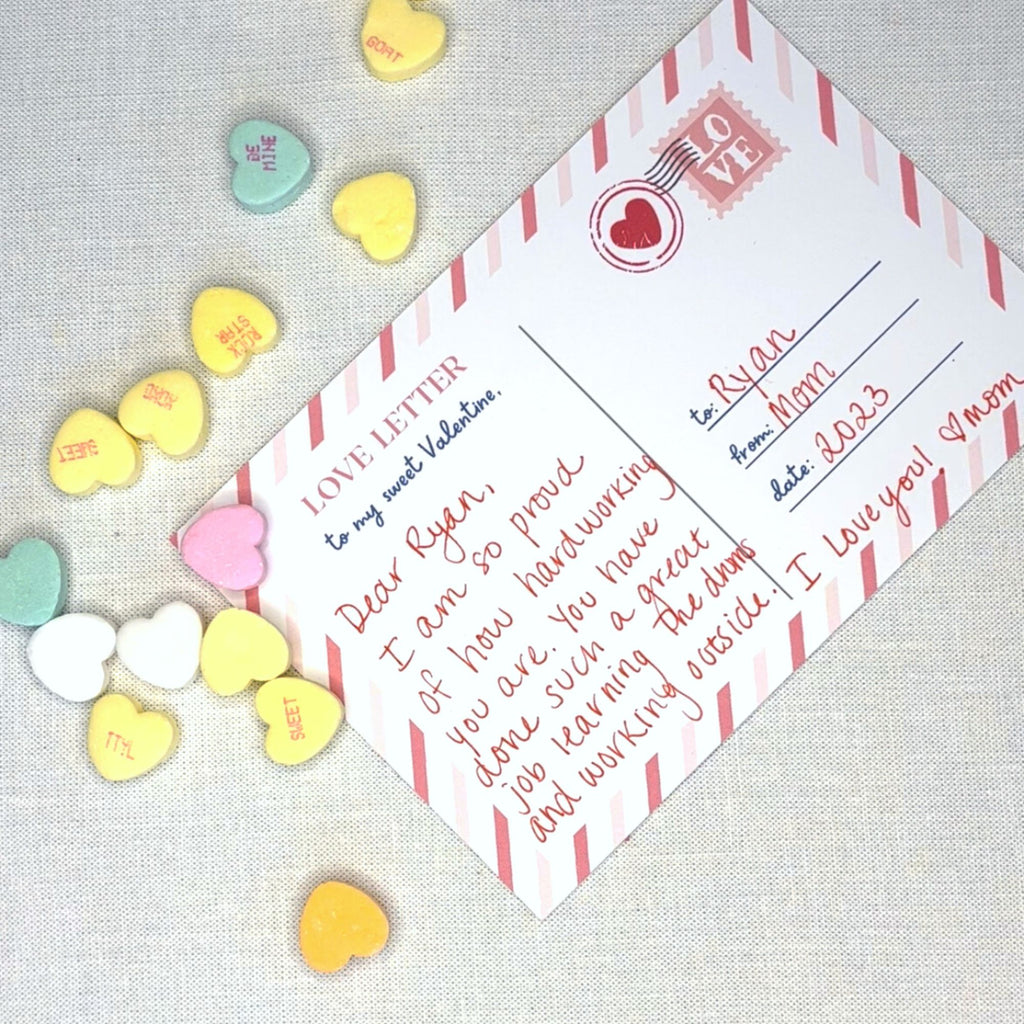 GOAT
BE
MINE
ROCK
STAR
SWEET
TTYL
SWEET
LOVE
LOVE LETTER
to my sweet Valentine,
Dear Ryan,
I am so proud
of how hardworking
you are. You have
done such a great
job learning the drums
and working outside. I Love you! ♡mom
to: Ryan
from: Mom
date: 2023